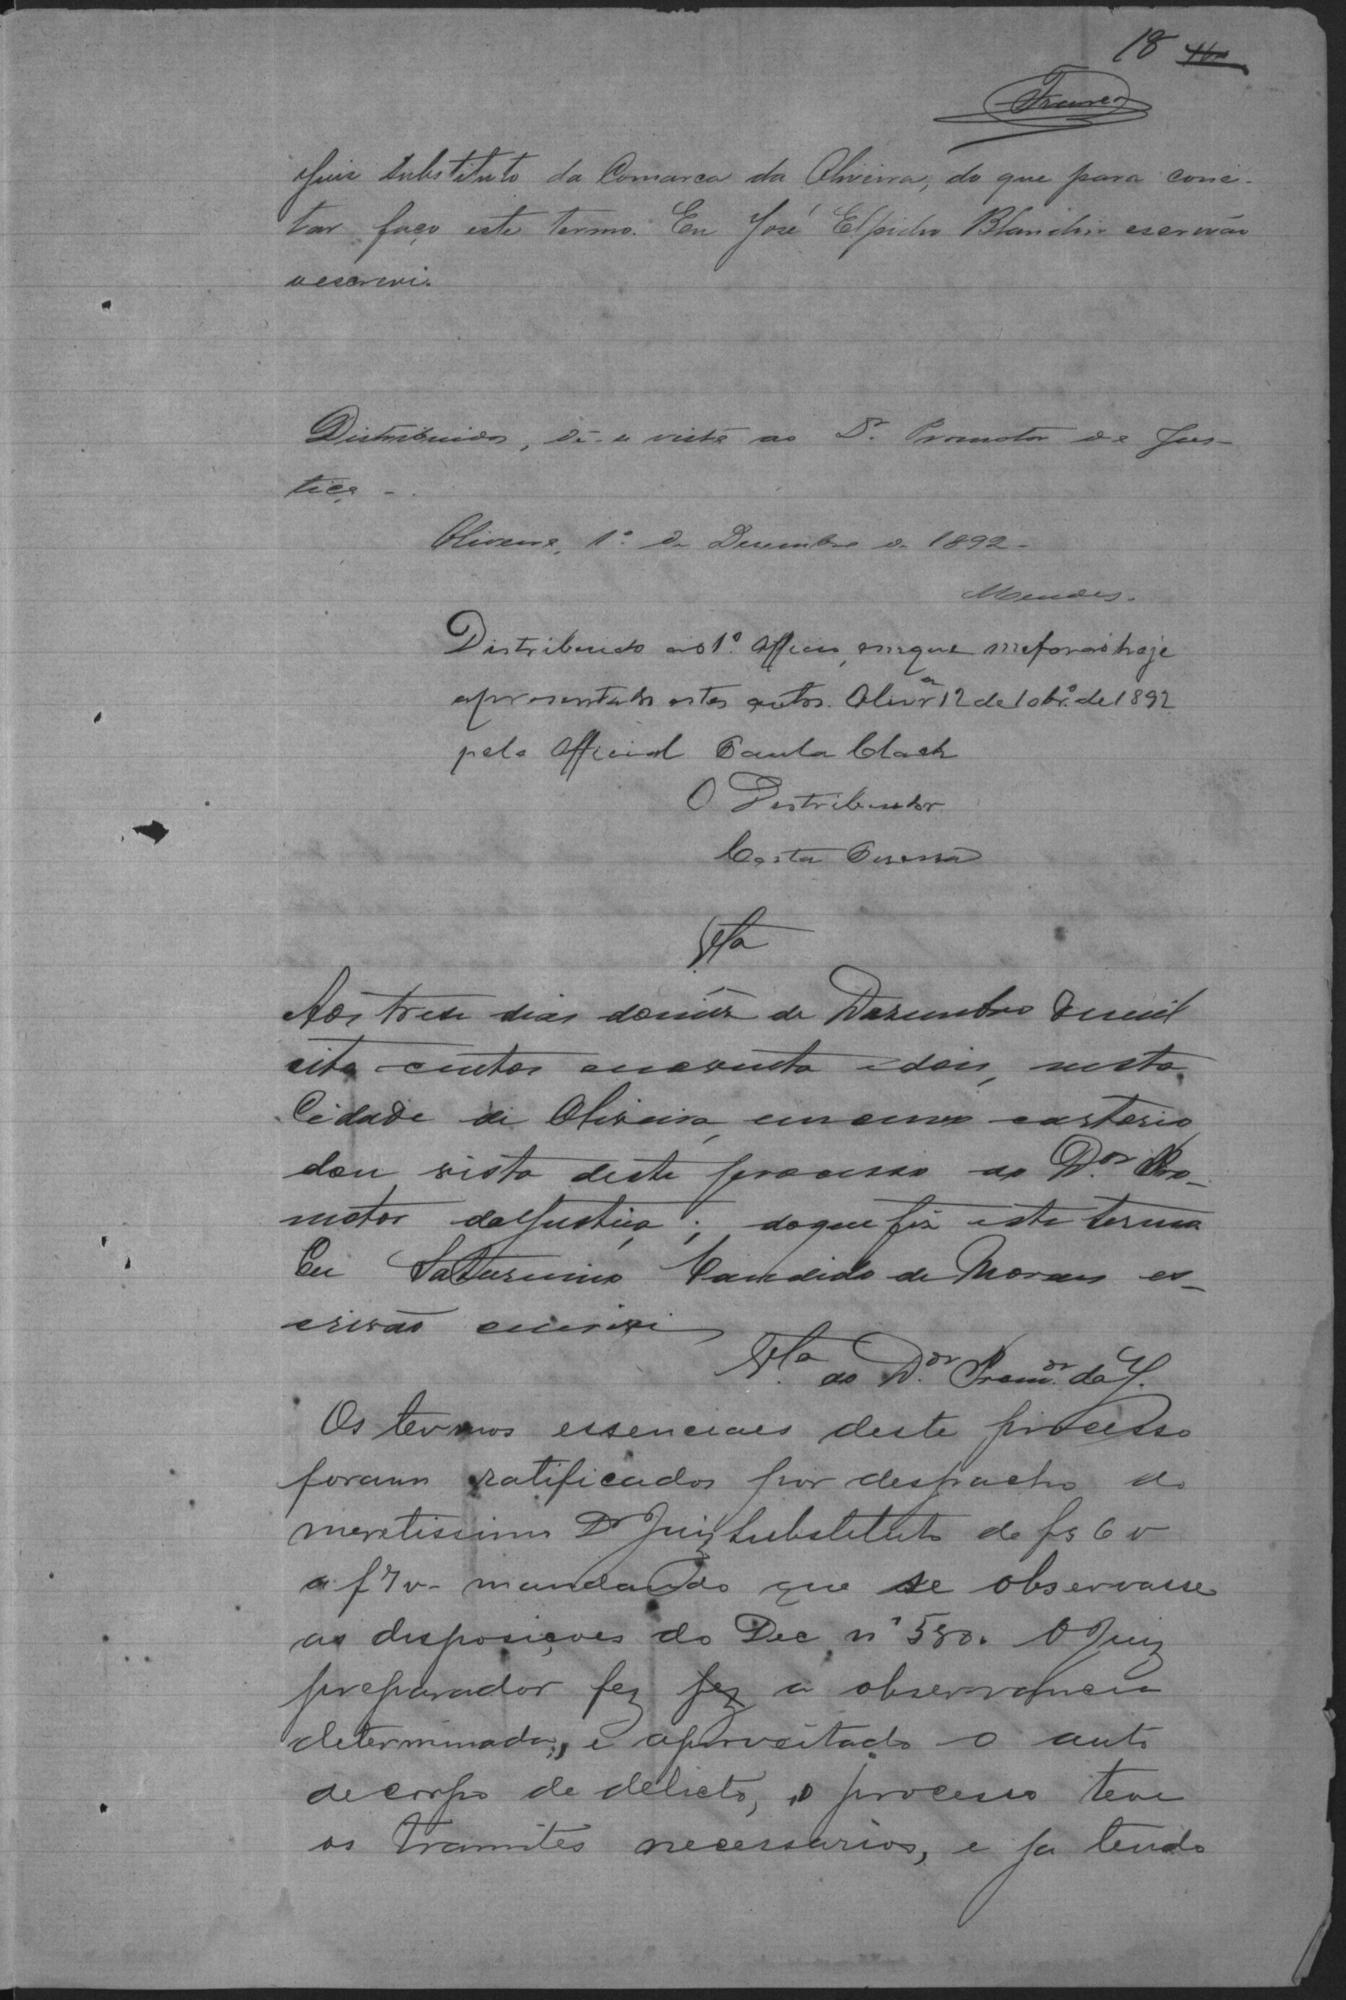 18
Franco
Juiz Substituto da Comarca da Oliveira, do que para cons-
tar faço este termo. Eu José Elpidio escrivão
o escrevi.
Distribuidos, dê-se vista ao Dr. Promotor de Jus-
tiça -
Oliveira, 1º de Dezembro de 1892 -
Mendes.
Distribuido ao 1º. Officio, em que me forão hoje
apresentados estes autos. Olivrª 12 de 10brº. de 1892
pelo Official Paula
O Distribuidor
Costa Pereira
Vta
Aos treze dias do mez de Dezembro de mil
oito centos e noventa e dois, nesta
Cidade de Oliveira, em meu cartorio
dou vista deste processo ao Dor. Pro-
motor da Justiça; do que fiz este termo
Eu Saturnino Candido de Moraes es-
crivão escrevi
Vta. ao Dor. Promor. da J.
Os termos essenciaes deste processo
foram ratificados por despacho do
meretissimo Dr Juiz Substituto de fs 6 v
a f 7 v - mandando que se observasse
as disposições do Dec nº 580. O Juiz
preparador fez fez a observancia
determinada, e aproveitado o auto
de corpo de delicto, o processo teve
os tramites necessarios, e ja tendo